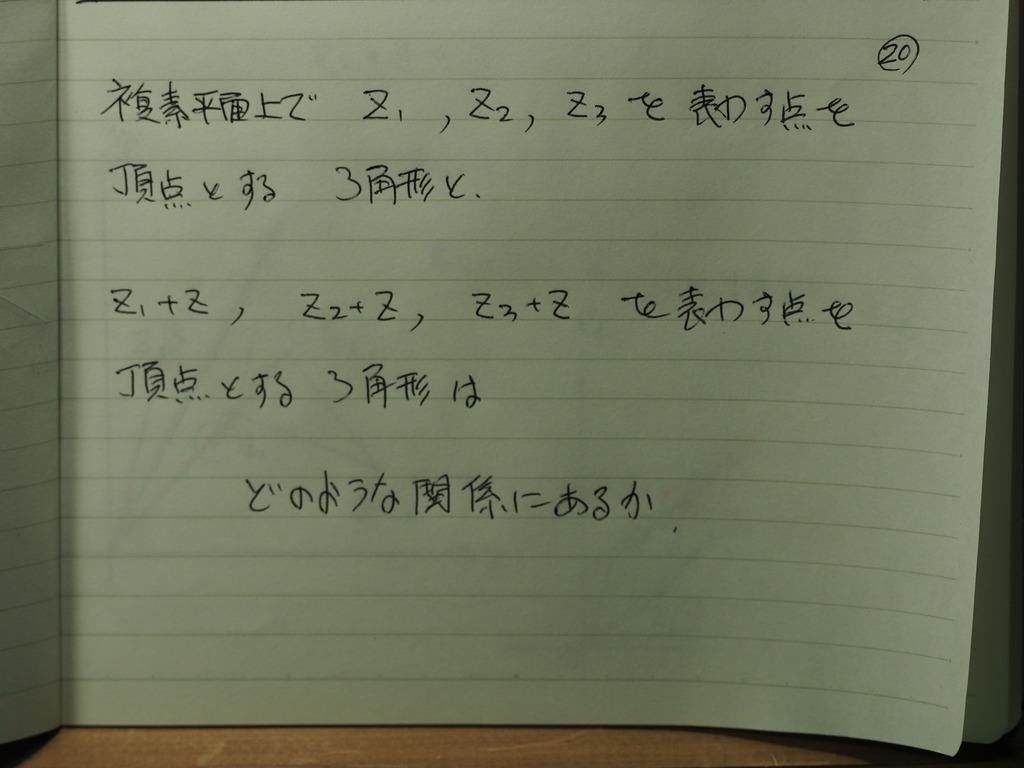 ⑳
複素平面上で z₁, z₂, z₃ を 表わす点を
頂点とする 3角形と、
z₁+z, z₂+z, z₃+z を表わす点を
頂点とする 3角形は
どのような関係にあるか.